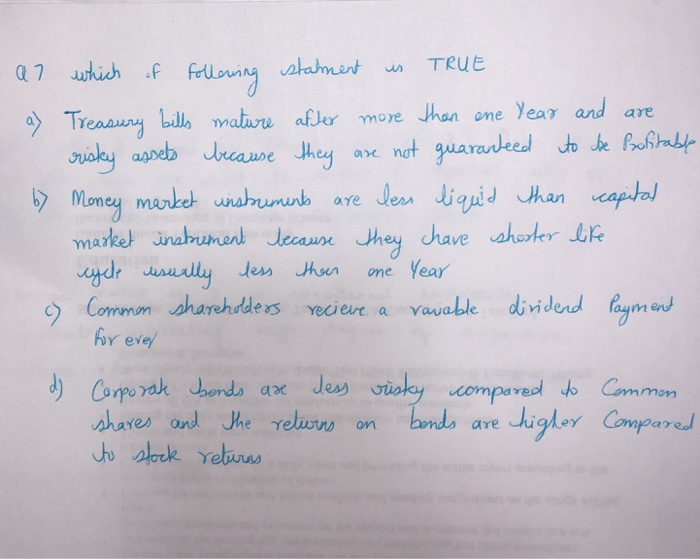 Q7 which of following statment is TRUE
a) Treasury bills mature after more than one Year and are
risky assets because they are not guaranteed to be Profitable
b) Money market instruments are less liquid than capital
market instrument because they have shorter life
cycle usually less than one Year
c) Common shareholders recieve a variable dividend Payment
for ever
d) Corporate bonds are less risky compared to Common
shares and the returns on bonds are higher Compared
to stock returns